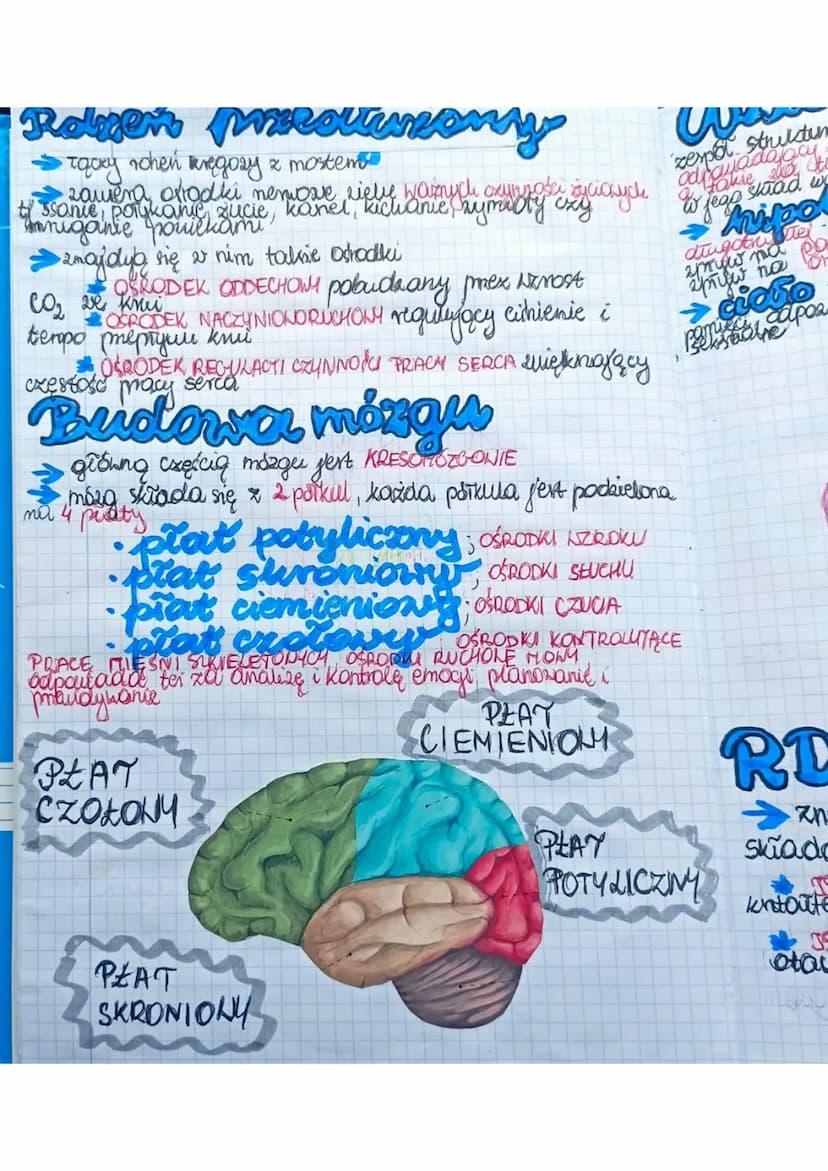 Rdzeń przedłużony
→ łączy rdzeń kręgowy z mostem
→ zawiera ośrodki nerwowe wielu ważnych czynności życiowych
tj ssanie, połykanie, żucie, kaszel, kichanie, wymioty czy
mruganie powiekami
→ znajdują się w nim także ośrodki
OŚRODEK ODDECHOWY pobudzany przez wzrost
CO2 we krwi
OŚRODEK NACZYNIORUCHOWY regulujący ciśnienie i
tempo przepływu krwi
OŚRODEK REGULACJI CZYNNOŚCI PRACY SERCA zwiększający
częstość pracy serca
Budowa mózgu
→ główną częścią mózgu jest KRESOMÓZGOWIE
→ mózg składa się z 2 półkul, każda półkula jest podzielona
na 4 płaty
• płat potyliczny; OŚRODKI WZROKU
• płat skroniowy; OŚRODKI SŁUCHU
• płat ciemieniowy; OŚRODKI CZUCIA
• płat czołowy OŚRODKI KONTROLUJĄCE
PRACĘ MIĘŚNI SZKIELETOWYCH, OŚRODKI RUCHOWE MOWY
odpowiada też za analizę i kontrolę emocji, planowanie i
przewidywanie
PŁAT
CIEMIENIOWY
PŁAT
CZOŁOWY
PŁAT
POTYLICZNY
PŁAT
SKRONIOWY
zespół struktur
odpowiadający
a także za
w jego skład w
→ hipo
wpływ na
wpływ na
→ ciało
pamięć odpow
seksualne
RD
→ zn
składa
kształt